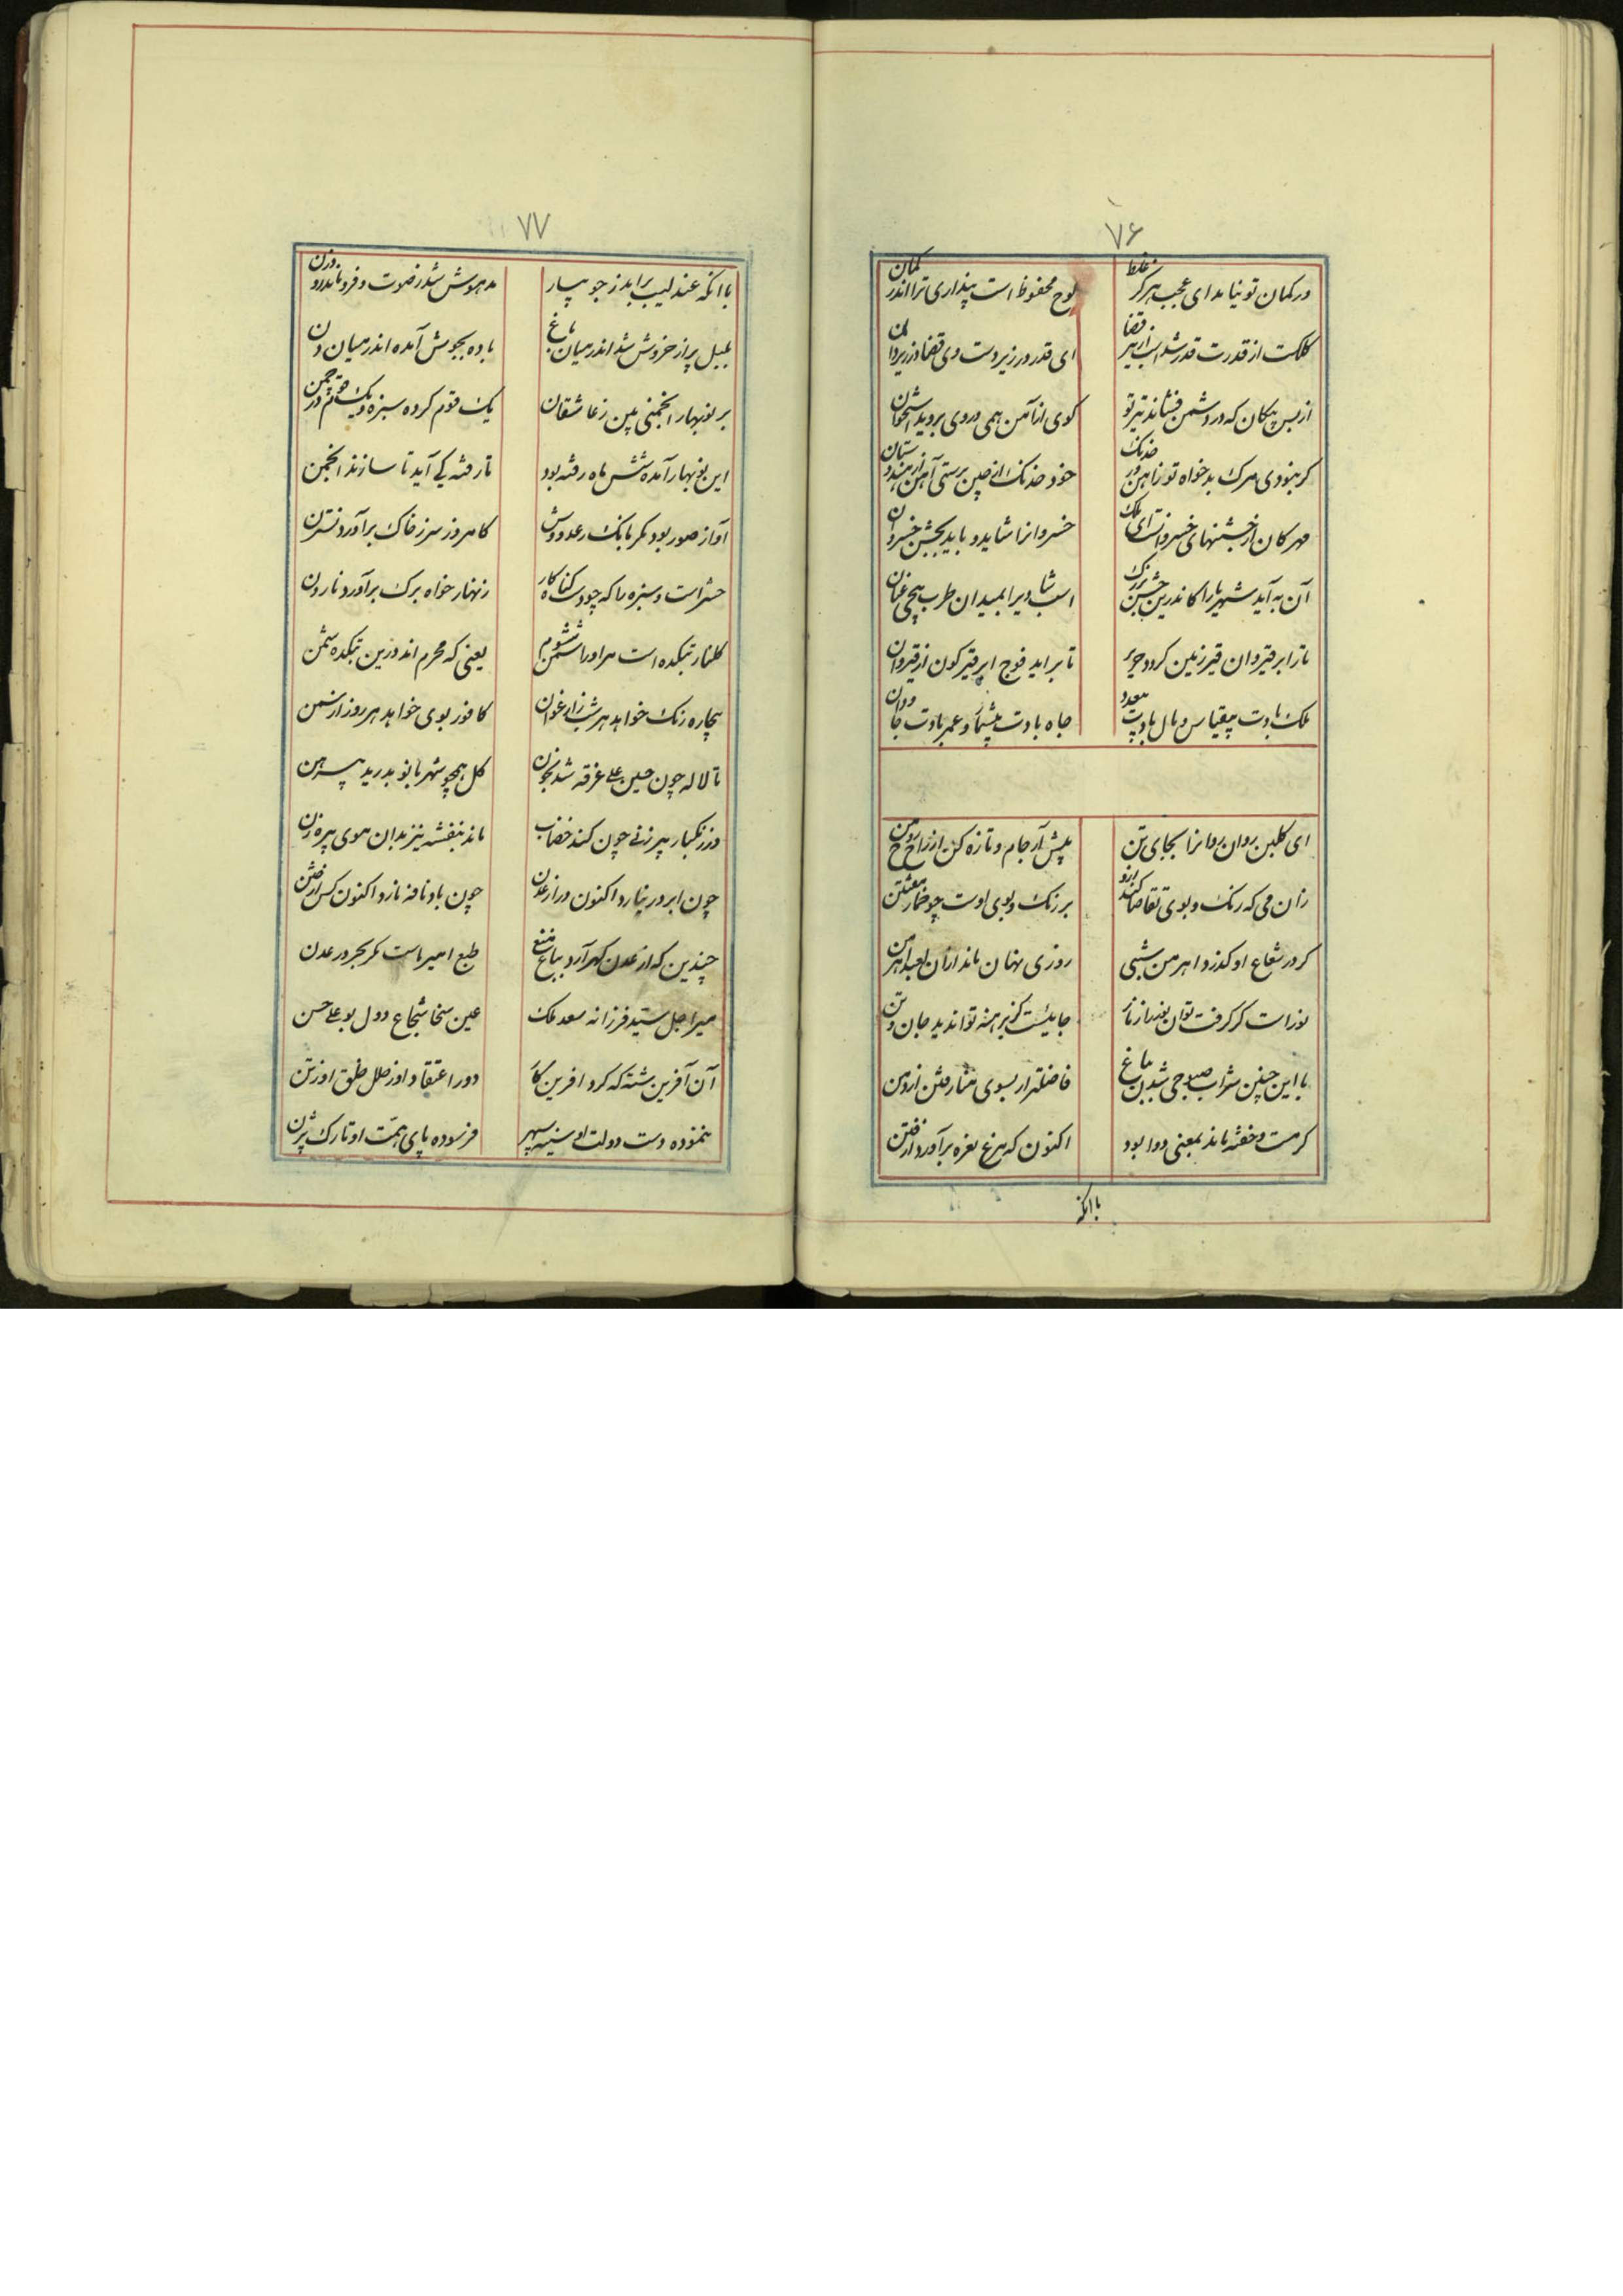 ۷۶
در کمان تو نیاید ای عجب هرگز غلط
لوح محفوظ است پنداری ترا اندر کمان
کلکت از قدرت قدر شد
ای قدر در زیر دست وی قضا در زیر ران
از بس پیکان که در دشمن فشاند تیر تو
کوی از آهن همی در وی بروید استخوان
کر نبودی مرک بدخواه تو زاهن در خدنک
خود خدنک از چین برستی آهن از هندوستان
مهرکان از جشنهای خسروانست ای ملک
خسروانرا شاید و باید بجشن خسروان
آن به آید شهریارا کاندرین جشن بزرک
اسب شادیرا بمیدان طرب پیچی عنان
تا بر اید فوج ابر قیر کون از قیروان
ملک بادت بیقیاس و مال بادت بیعدد
جاه بادت و عمر بادت جاودان
ای کلبن روان روانرا بجای تن
پیش آر جام و تازه کن از راح روح من
زان می که رنک و بوی تقاضا کند ازو
بر رنک و بوی اوست
کر در شعاع او کذرد اهرمن شبی
روزی نهان ماند ازان اهرمن
با این چنین شراب صلاحی شدن بباغ
اکنون که مرغ نعره برآورد از فتن
کر مست و خفته ماند بمعنی روا بود
با انکه
۷۷
با انکه عندلیب براید ز جویبار
مدهوش شد ز صوت و فروماند در وزن
بلبل پر از خروش شد اندر میان باغ
باده بجوش آمده اندر میان دن
بر نوبهار انجمنی بین ز عاشقان
یک قوم کرد سبزه و یک قوم در چمن
این نوبهار آمده شش ماه رفته بود
تا رفته کی آید تا سازند انجمن
آواز صور بود مکر بانک رعد دوش
کامروز سر ز خاک برآورد نسترن
حشر است و سبزه را که چو دست کناه کار
زنهار خواه برک برآورد نارون
کلنار بتکده است
یعنی که محرم اند درین بتکده شمن
بیچاره رنک خواهد هر شب ز ارغوان
کافور بوی خواهد هر روز از سمن
تا لاله چون حسین علی غرقه شد بخون
کل همچو شهربانو بدرید پیرهن
در زنکبار پیرزنی چون کند خضاب
ماند بنفشه نیز بدان موی پیره زن
چون ابر در نیارد اکنون در از عدن
چون باد نافه نارد اکنون کس از ختن
چندین که از عدن کهر آرد بباغ میغ
طبع امیر ماست مکر بحر در عدن
میر اجل سید فرزانه سعد ملک
عین سخا شجاع دول بوعلی حسن
آن آفرین شته که کرد افرین
دور اعتقاد او ز خلل خلق او ز تن
ننموده دست دولت او سینه سپهر
فرسوده پای همت او تارک پرن